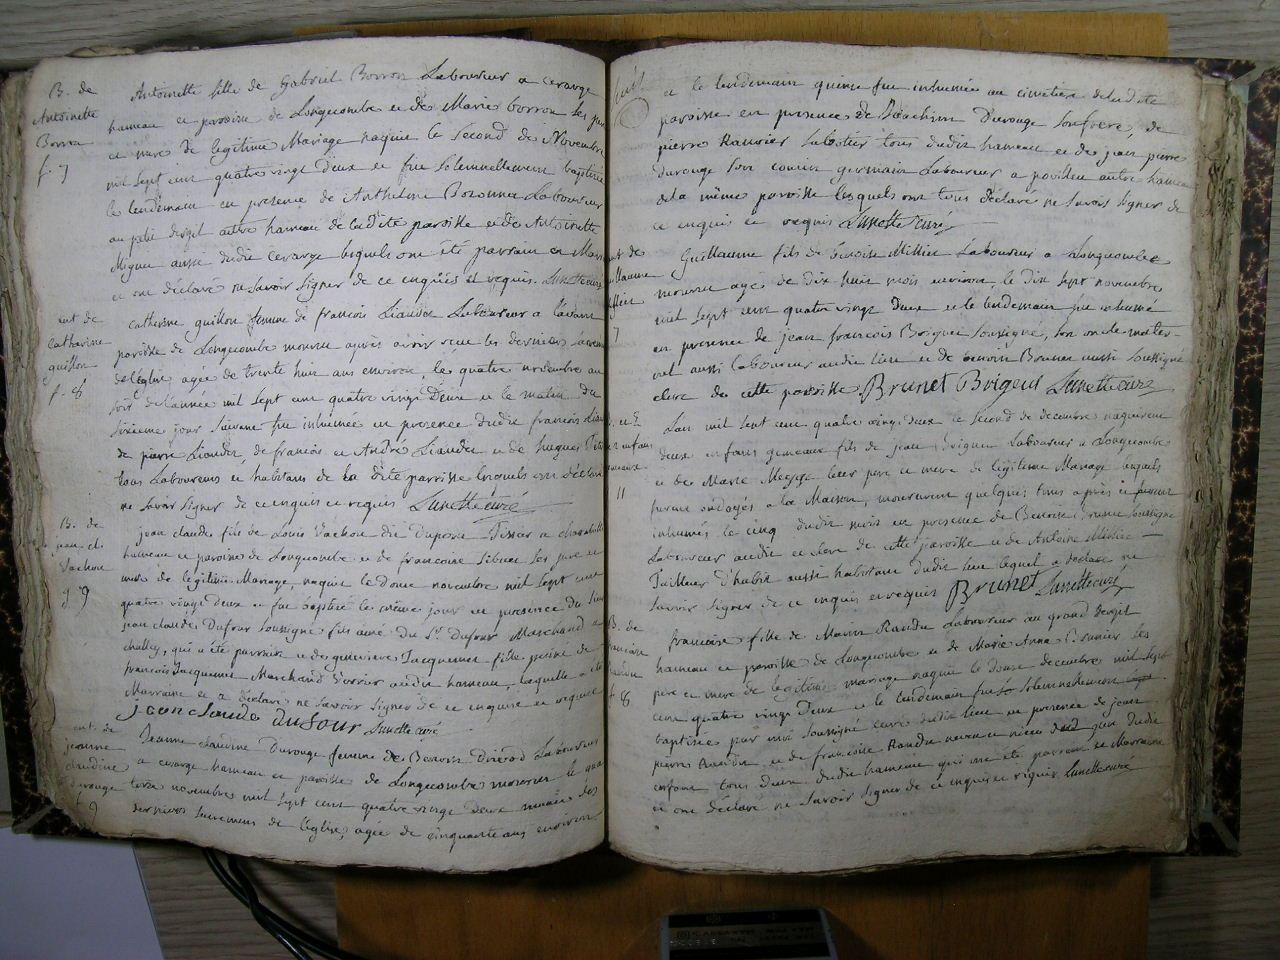 B. de
Antoinette
Borron
f. 7
Antoinette fille de Gabriel Borron Laboureur a cerarge
hameau et paroisse de Longecombe et de Marie borron ses pere
et mere de legitime Mariage naquit le second de Novembre
mil sept cent quatre vingt deux et fut solemnellement baptisée
le lendemain en presence de Anthelme Bozonnet Laboureur
au petit dergit autre hameau de ladite paroisse et de Antoinette
Miguet aussi dudit cerarge lesquels ont été parrain et Marr
et ont déclaré ne savoir signer de ce enquis et requis. Lunette curé
ent. de
Catherine
guillon
f. 8
Catherine guillon femme de françois Liaudet Laboureur a Lavant
paroisse de Longecombe mourut après avoir reçu les derniers sacrem
de l'église, agée de trente huit ans environ, le quatre novembre au
soir de l'année mil sept cent quatre vingt Deux et le matin du
sixieme jour suivant fut inhumée en presence dudit françois Liau
de pierre Liaudet, de françois et André Liaudet et de hugues
tous Laboureurs et habitans de la dite parroisse lesquels ont déclaré
ne savoir signer de ce enquis et requis Lunette curé
B. de
jean cl.
Vachou
g. 9
jean claude fils de Louis Vachou dit Dupont Tissier a
hameau et paroisse de Longecombe et de francoise Sibuet ses pere et
mere de legitime Mariage, naquit le Douze novembre mil sept cent
quatre vingt Deux et fut baptisé le même jour en presence du Sieur
jean claude Dufour soussigné fils ainé du Sr. Dufour Marchand a
challey, qui a été parrain et de genevieve Jacquemet fille de
françois Jacquemet Marchand audit hameau, laquelle a été
Marraine et a déclaré ne savoir signer de ce enquise et requise
jean claude dufour Lunette curé
ent. de
jeanne
claudine
Durouge
f. 9
Jeanne claudine Durouge femme de Benoit Laboureur
a cerarge hameau et paroisse de Longecombe mourut le qua
torze novembre mil sept cent quatre vingt Deux munie des
derniers sacremens de l'église, agée de cinquante ans environ
et le lendemain quinze fut inhumée au cimetière de ladite
paroisse en presence de Joachim Durouge son frere, de
pierre Ranvier Sabotier tous dudit hameau et de jean pierre
durouge son cousin germain Laboureur a autre hameau
de la même paroisse lesquels ont tous déclaré ne savoir signer de
ce enquis et requis Lunette curé
Guillaume fils de benoit Millet Laboureur a Longecombe
mourut agé de dix huit mois environ le dix sept novembre
mil sept cent quatre vingt Deux et le lendemain fut inhumé
en presence de jean françois Boigeut soussigné, son oncle mater-
nel aussi laboureur audit lieu et de benoit Brunet aussi soussigné
clerc de cette paroisse. Brunet Boigeut Lunette curé
7
L'an mil sept cent quatre vingt deux le second de decembre naquirent
deux enfans gemeaux fils de jean Laboureur a Longecombe
et de Marie leur pere et mere de légitime Mariage lesquels
furent ondoyés a la Maison, moururent quelques tems après et furent
inhumés le cinq dudit mois en presence de Benoit Brunet soussigné
Laboureur audit et clerc de cette paroisse et de Antoine Millet
Tailleur d'habit aussi habitant dudit lieu lequel a déclaré ne
savoir signer de ce enquis et requis Brunet Lunette curé
11
B. de
francoise
Randu
f. 8
francoise fille de Marin Randu Laboureur au grand dergit
hameau et paroisse de Longecombe et de Marie Anne ses
pere et mere de legitime mariage naquit le Douze decembre mil sept
cent quatre vingt Deux et le lendemain fut solemnellement
baptisée par moi soussigné curé dudit lieu en presence de jean
pierre Randu et de francoise Randu neveu et niece dudit
enfant tous Deux dudit hameau qui ont été parrain et Marraine
et ont déclaré ne savoir signer de ce enquis et requis Lunette curé